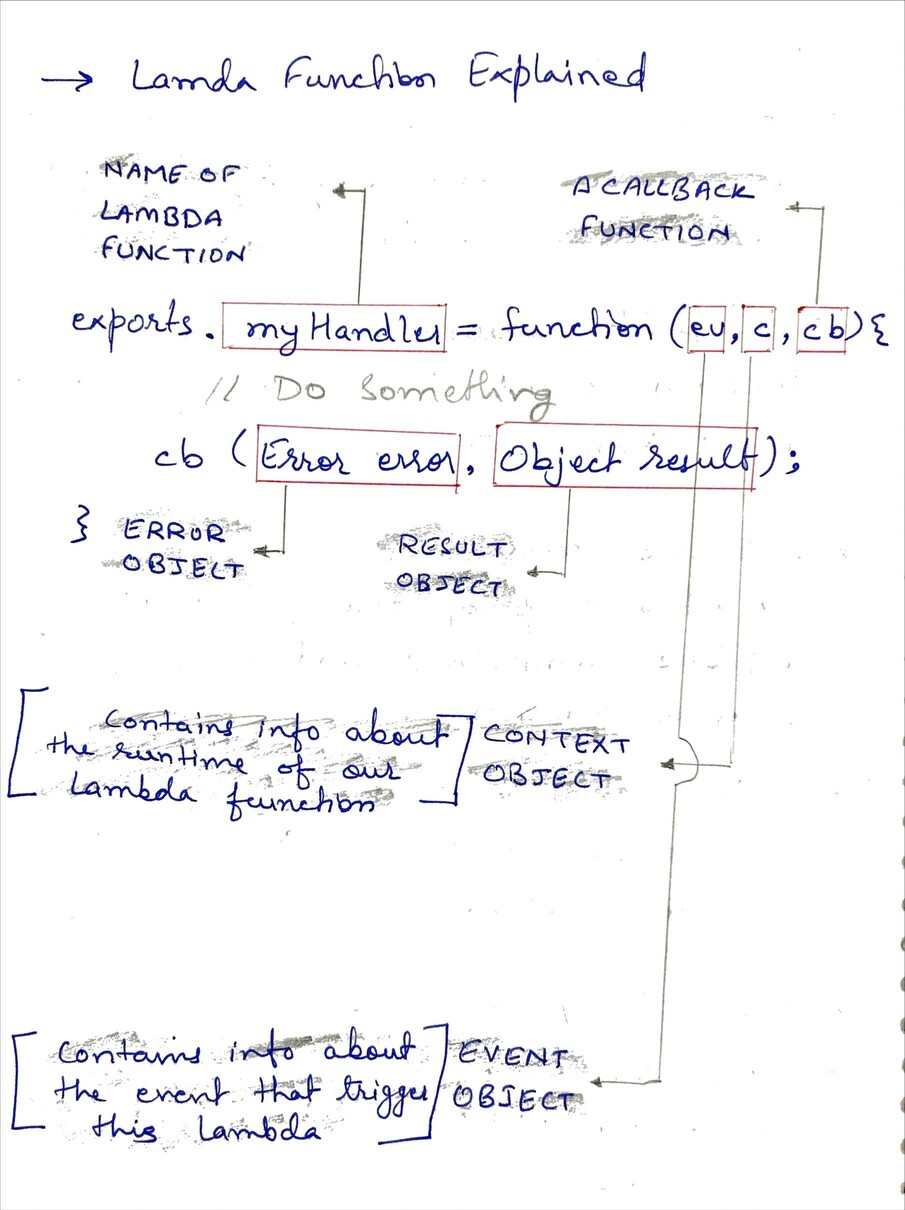 → Lamda Function Explained
NAME OF
LAMBDA
FUNCTION
A CALLBACK
FUNCTION
exports. myHandler = function (ev, c, cb) {
// Do Something
cb (Error error, Object result);
}
ERROR
OBJECT
RESULT
OBJECT
[Contains info about
the runtime of our
Lambda function]
CONTEXT
OBJECT
[Contains info about
the event that trigger
this lambda]
EVENT
OBJECT